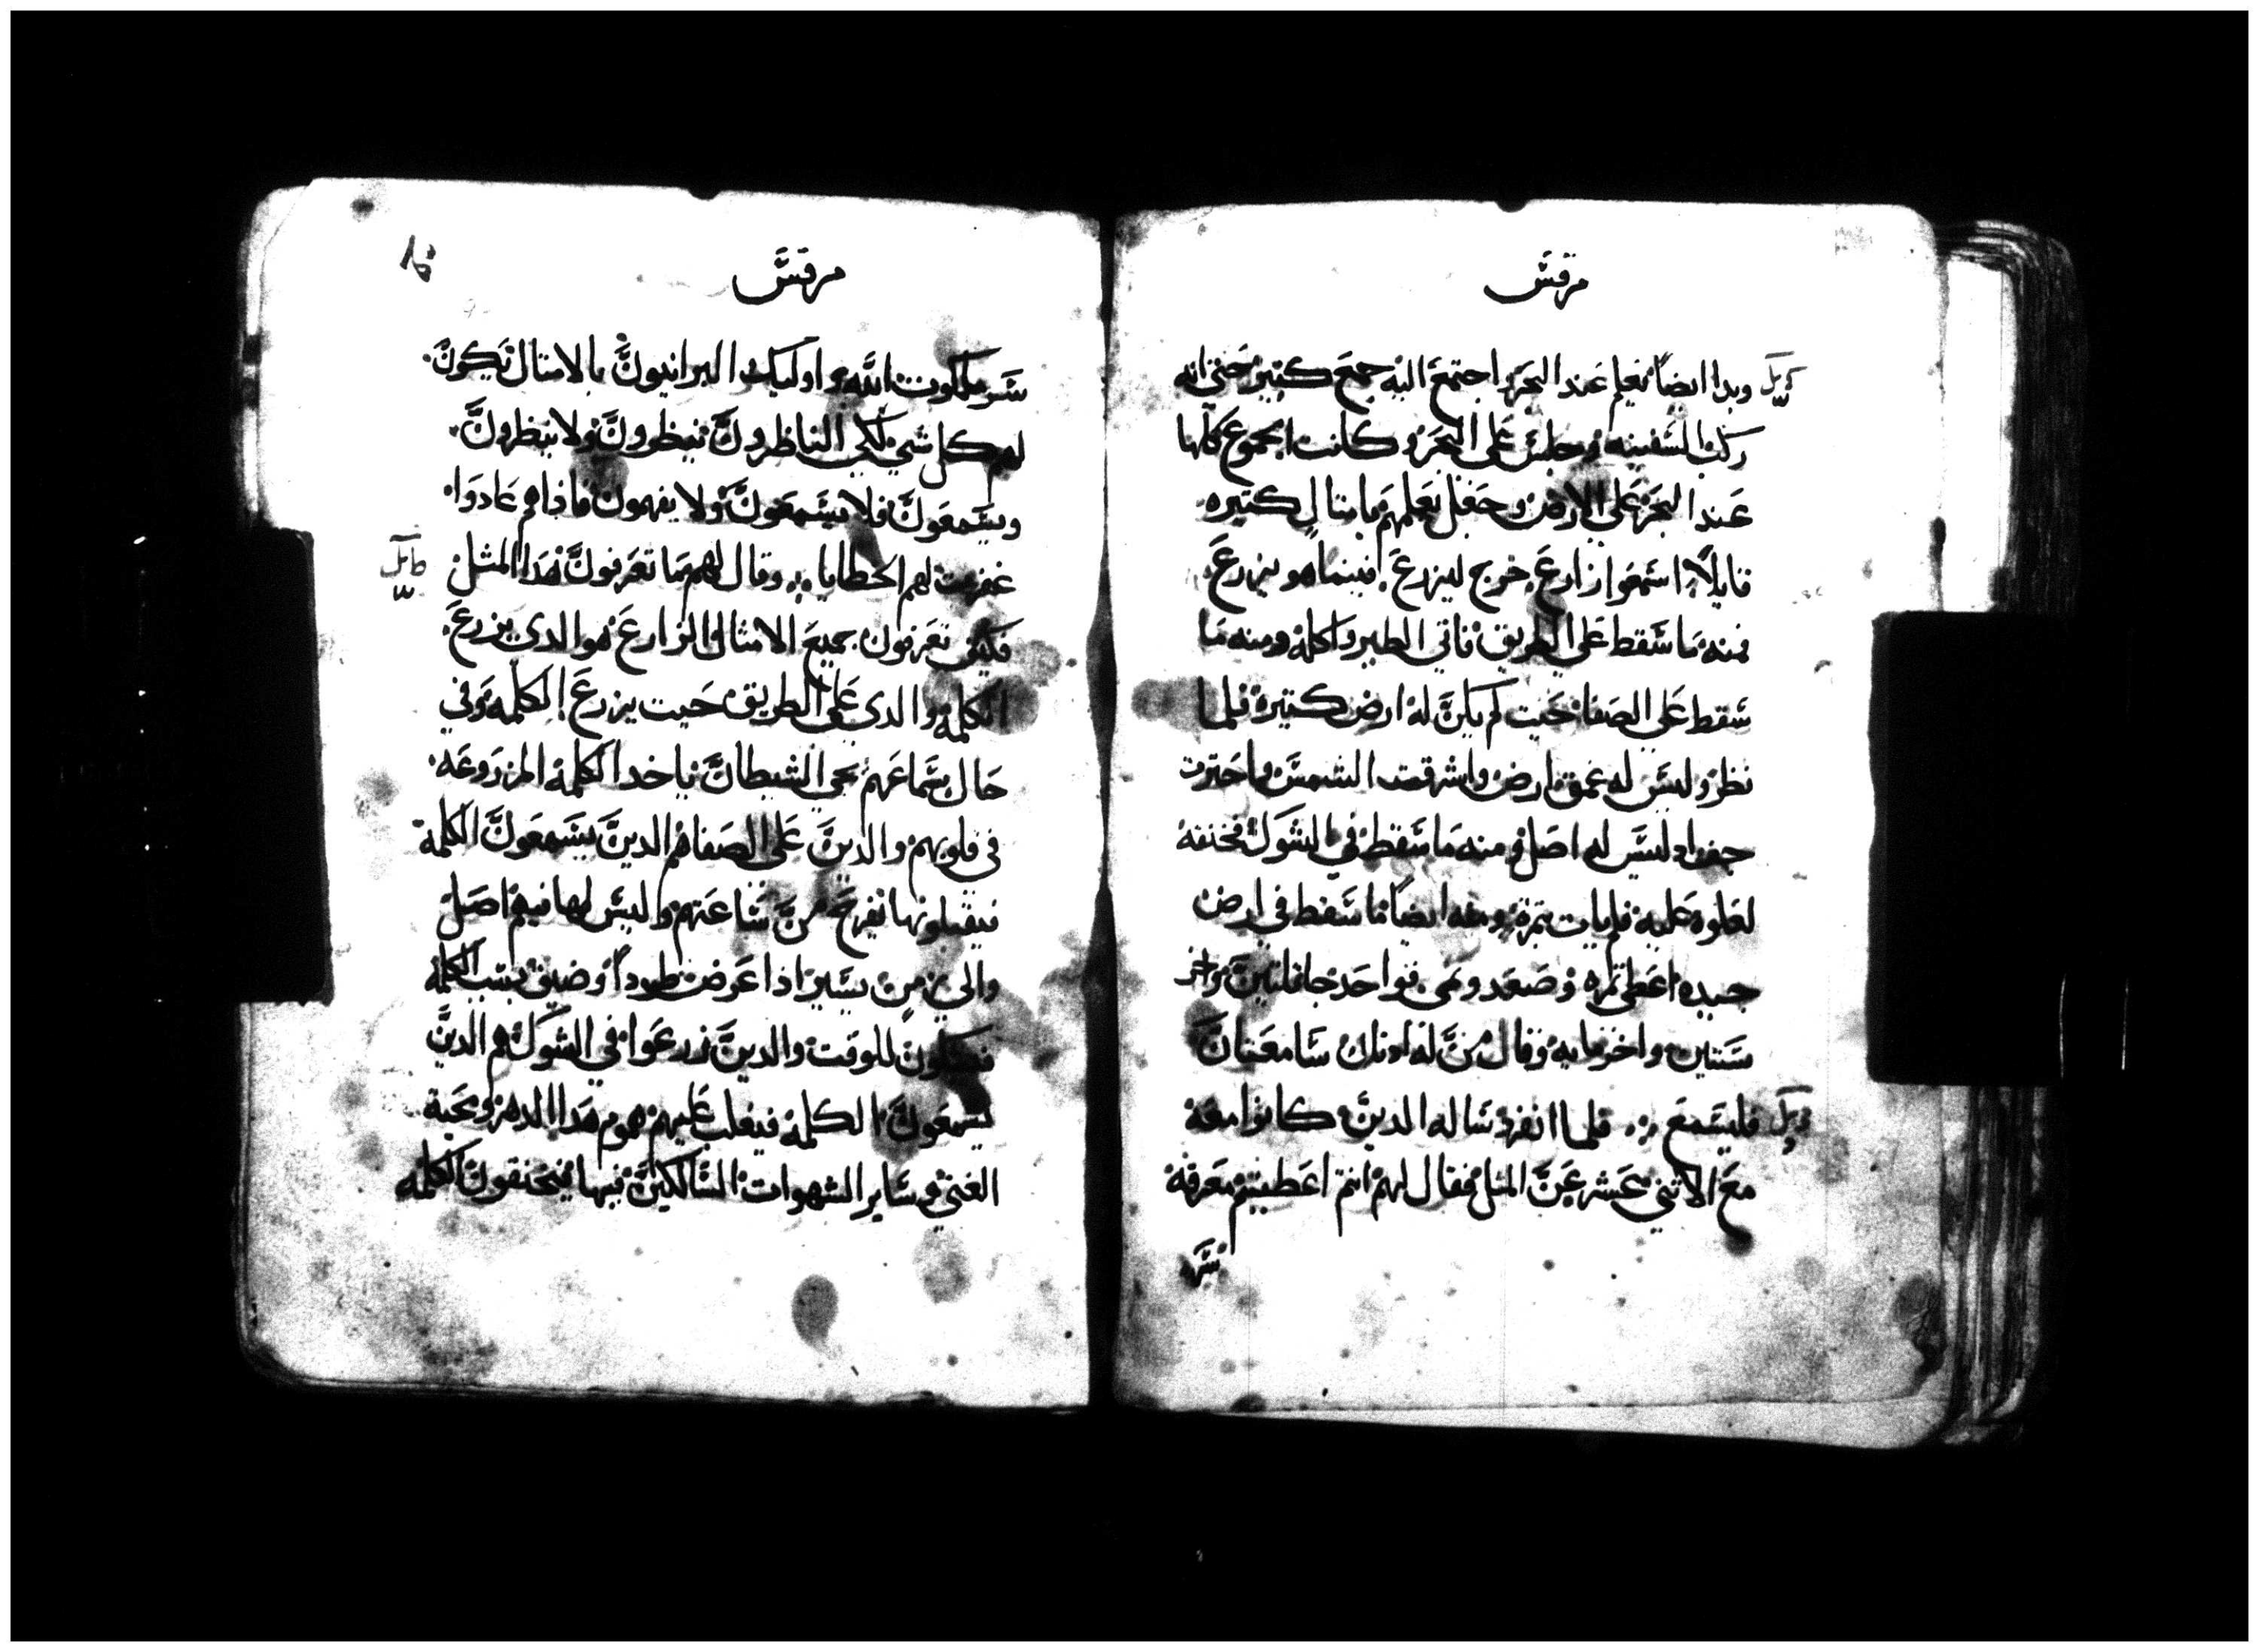 مرقسَ
وبدا ايضاً يعلم عَند البحرَ اجتمعَ اليه جمعَ كتير حَتي انه
ركب السَفينه وجلسَ عَلي البحَر وكانت الجموعَ كلها
عَند البحَر عَلي الارض وجَعَل يعَلمهم بامتال كتيره
قايلاً اسَمعَوا زارعَ خرج ليزرعَ فبينما هو يزرعَ
فمنه مَا سَقط عَلي الطريق فاتي الطير واكله ومنه مَا
سَقط عَلي الصَفا حَيت لم يكنَ له ارض كتيره فلما
نظر وليسَ له عَمق ارض واشرقت الشمسَ احَترق
جف اد ليسَ له اصَل ومنه مَا سَقط في الشوكَ فخنقه
لعَلوه عَليه فلم يات بتمرة ومنه ايضاً مَا سَقط في ارض
جيده اعَطي تمره وصَعَد ونمي فواحَد جا تلتينَ واخر
سَتين واخر مايه وقال منَ له ادنان سَامعَتانَ
فليسَمعَ فلما انفرد سَاله الدينَ كانوا معَه
معَ الاثني عَشر عَنَ المثل فقال لهم انتم اعَطيتم معَرفة
سَر
مرقسَ
سَر ملكوت الله واوليك البرانيونَ بالامتال يَكونَ
لهم كل شي لكي الناظرونَ ينظرونَ ولا ينظرونَ
ويسَمعَونَ فلا يسَمعَونَ ولا يفهمون فاذا هم عَادوا
غفرت لهم الخطايا وقال لهم مَا تعَرفونَ هَدا المثل
فكيف تعَرفون جميعَ الامثال الزارعَ هو الدي يزرعَ
الكلمه والدي عَلي الطريق حَيت يزرعَ الكلمه وفي
حَال سَماعَهم يجي الشيطانَ ياخد الكلمه المزروعَه
في قلوبهم والدينَ عَلي الصَفا هم الدينَ يسَمعَونَ الكلمة
فيقبلونها بفرحَ منَ سَاعَتهم وليسَ لها فيهم اصَل
والي زمن يسَير اذا عَرض طرداً وضيق بسَبب الكلمه
فيشكون للوقت والدينَ زرعَوا في الشوكَ هم الدينَ
يسَمعَونَ الكلمه فيغلب عَليهم هموم هَدا الدهر ومحَبة
الغني وسَاير الشهوات السَالكينَ فيها فيختنقونَ الكلمه